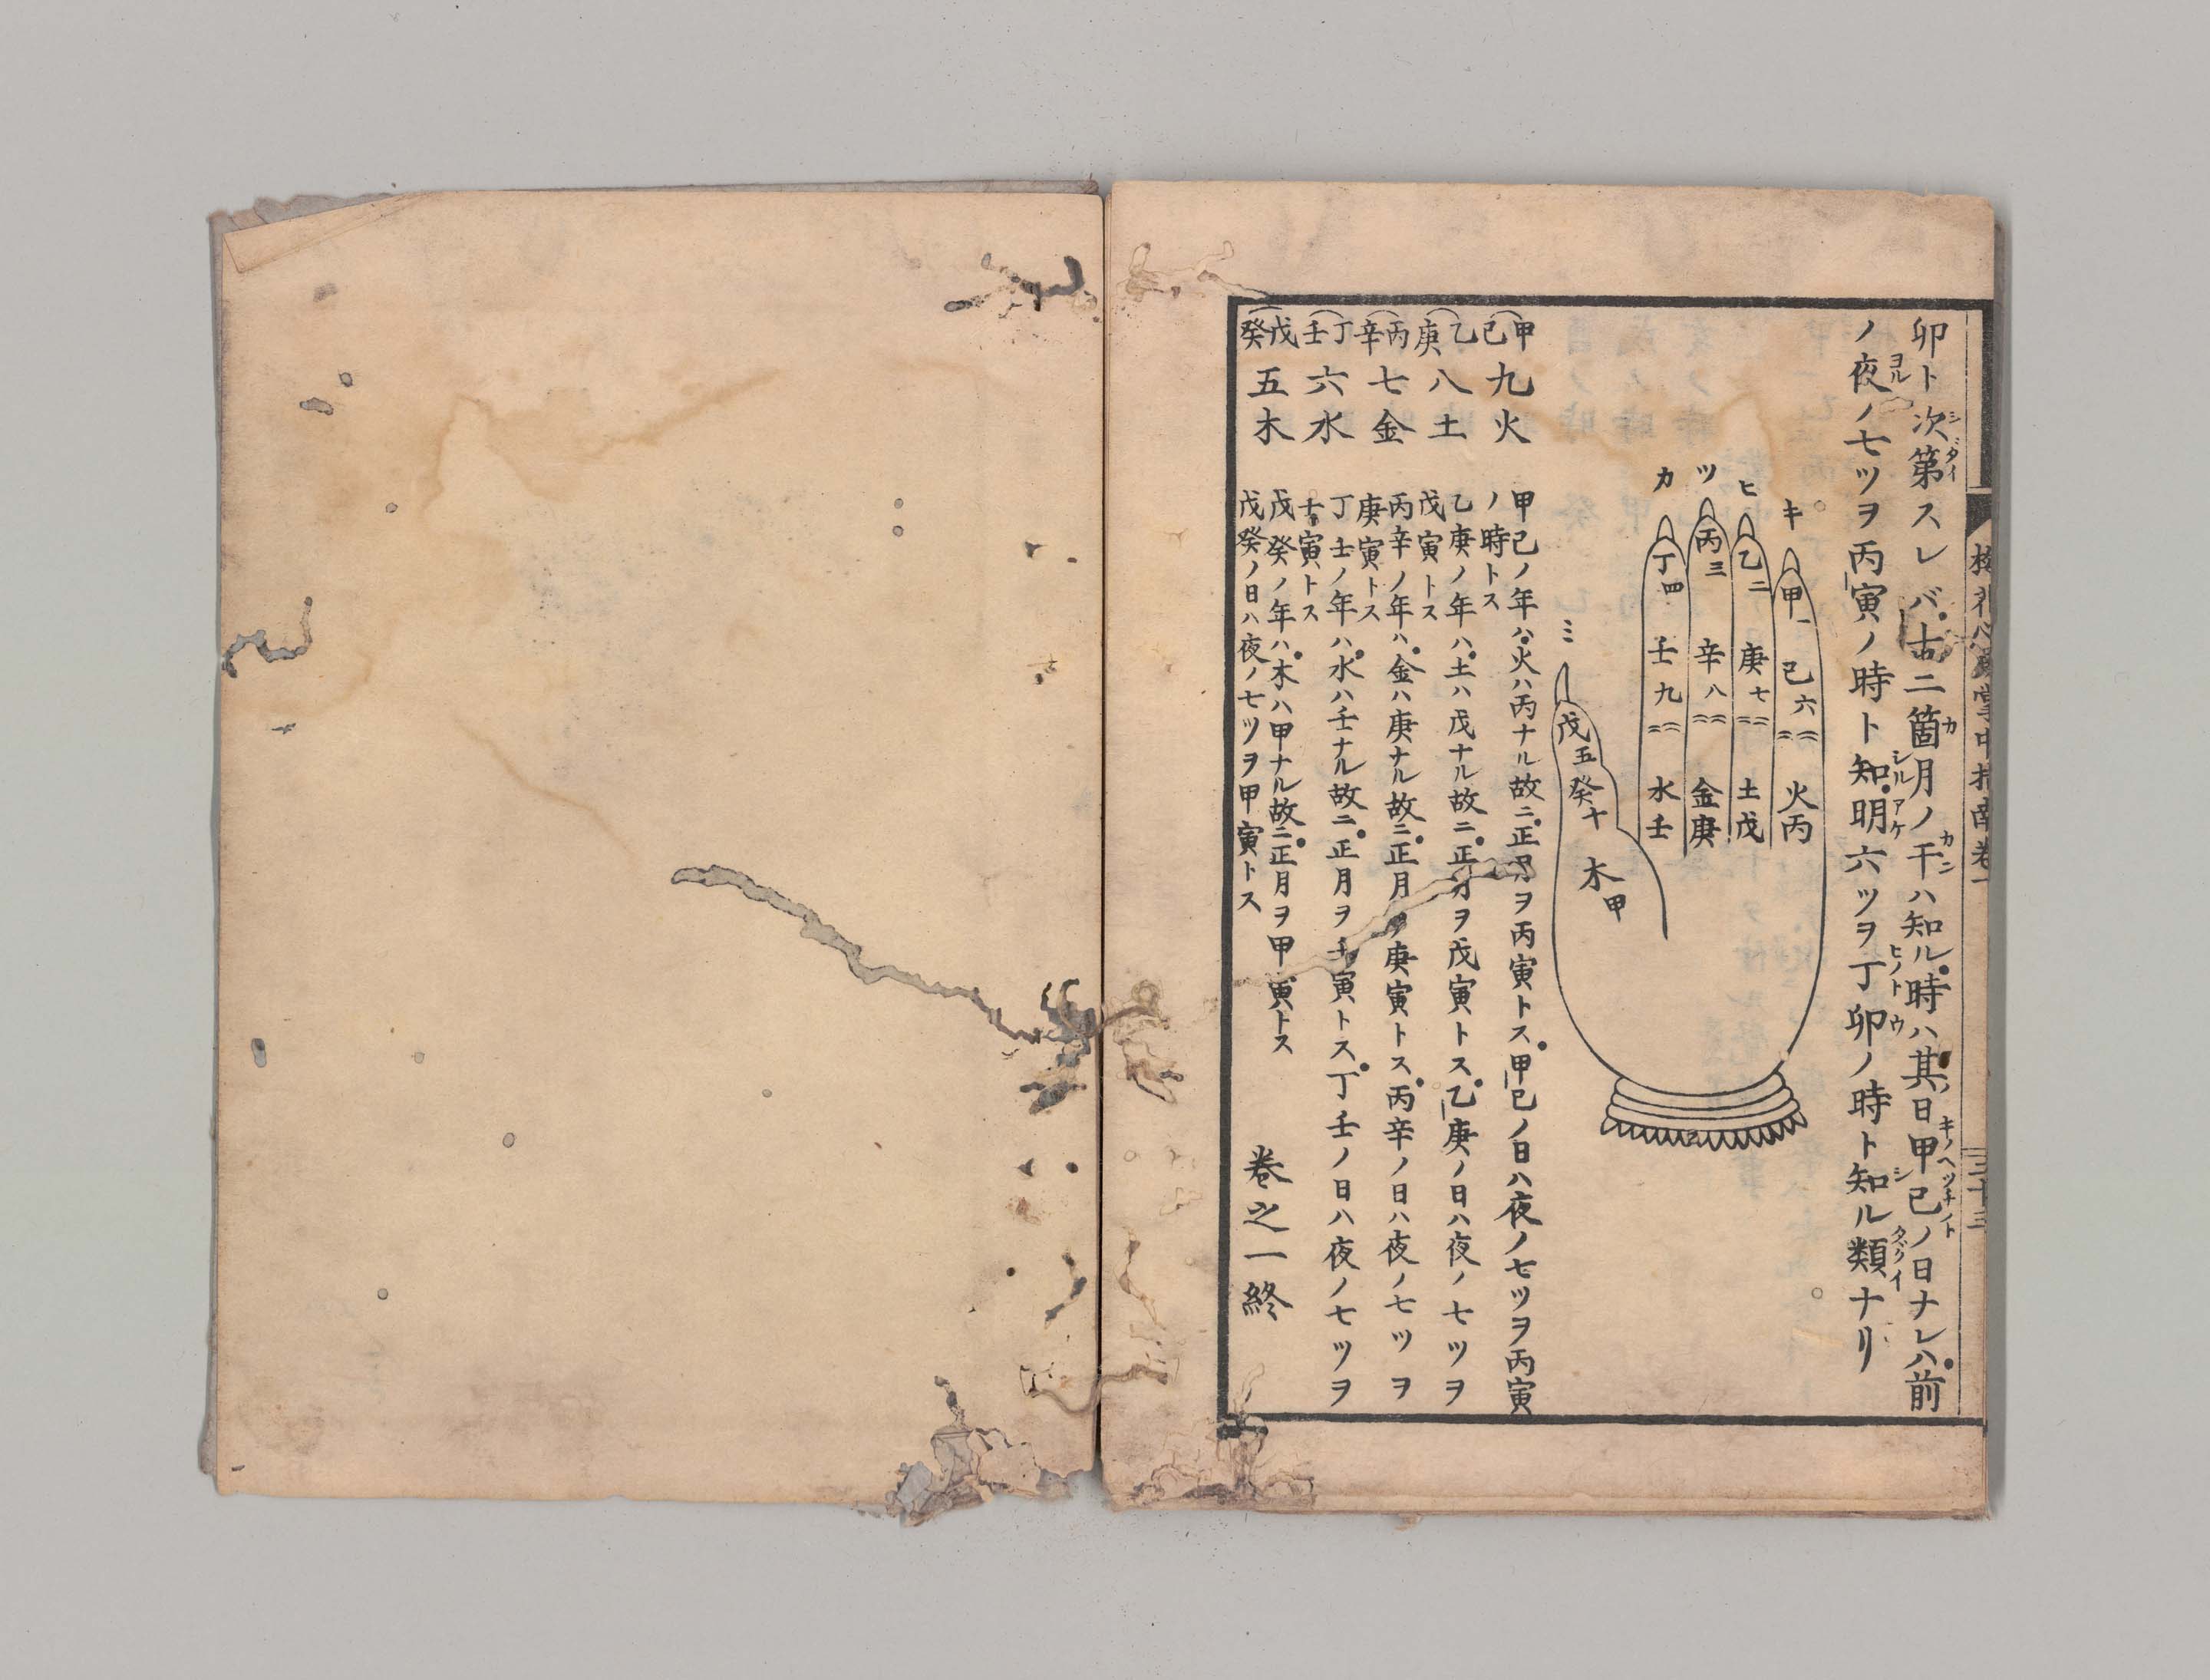 卯ト次第スレバ十二箇月ノ干ハ知ル時ハ其ノ日甲己ノ日ナレハ前
シダイ
カ
カン
キノヘツチノト
ノ夜ノ七ツヲ丙寅ノ時ト知明六ツヲ丁卯ノ時ト知ル類ナリ
ヨル
シルアケ
ヒノトウ
シ
タグイ
キ
甲一 己六 火丙
ヒ
乙二 庚七 土戊
ツ
丙三 辛八 金庚
カ
丁四 壬九 水壬
ミ
戊五癸十 木甲
甲己 九火
甲己ノ年ハ火ハ丙ナル故ニ正月ヲ丙寅トス甲己ノ日ハ夜ノ七ツヲ丙寅
ノ時トス
乙庚 八土
乙庚ノ年ハ土ハ戊ナル故ニ正月ヲ戊寅トス乙庚ノ日ハ夜ノ七ツヲ
戊寅トス
丙辛 七金
丙辛ノ年ハ金ハ庚ナル故ニ正月ヲ庚寅トス丙辛ノ日ハ夜ノ七ツヲ
庚寅トス
丁壬 六水
丁壬ノ年ハ水ハ壬ナル故ニ正月ヲ壬寅トス丁壬ノ日ハ夜ノ七ツヲ
壬寅トス
戊癸 五木
戊癸ノ年ハ木ハ甲ナル故ニ正月ヲ甲寅トス
戊癸ノ日ハ夜ノ七ツヲ甲寅トス
卷之一終
掌中指南卷一
三十三